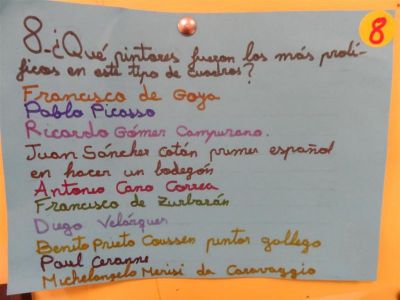 8
8-¿Qué pintores fueron los más prolí-
ficos en este tipo de cuadros?
Francisco de Goya
Pablo Picasso
Ricardo Gómez Campuzano.
Juan Sánchez Cotán primer español
en hacer un bodegón
Antonio Cano Correa
Francisco de Zurbarán
Diego Velázquez
Benito Prieto Coussen pintor gallego
Paul Cezanne
Michelangelo Merisi da Caravaggio